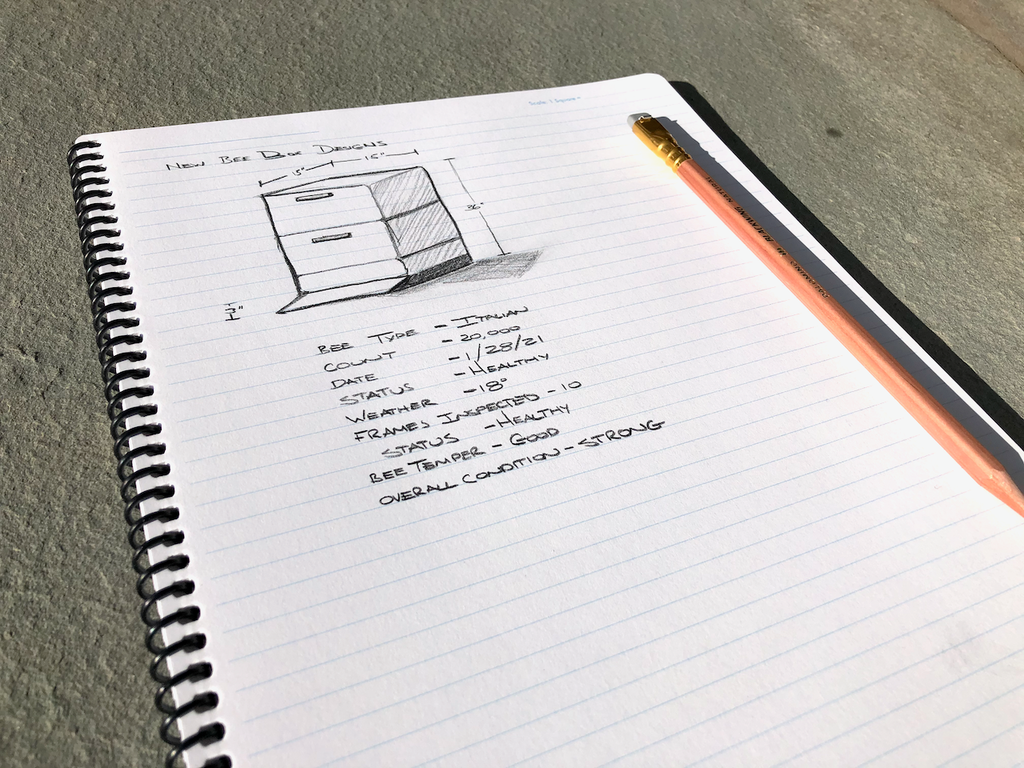 NEW BEE BOX DESIGNS
16"
36"
3"
BEE TYPE - ITALIAN
COUNT - 20,000
DATE - 1/28/21
STATUS - HEALTHY
WEATHER - 18°
FRAMES INSPECTED - 10
STATUS - HEALTHY
BEE TEMPER - GOOD
OVERALL CONDITION - STRONG